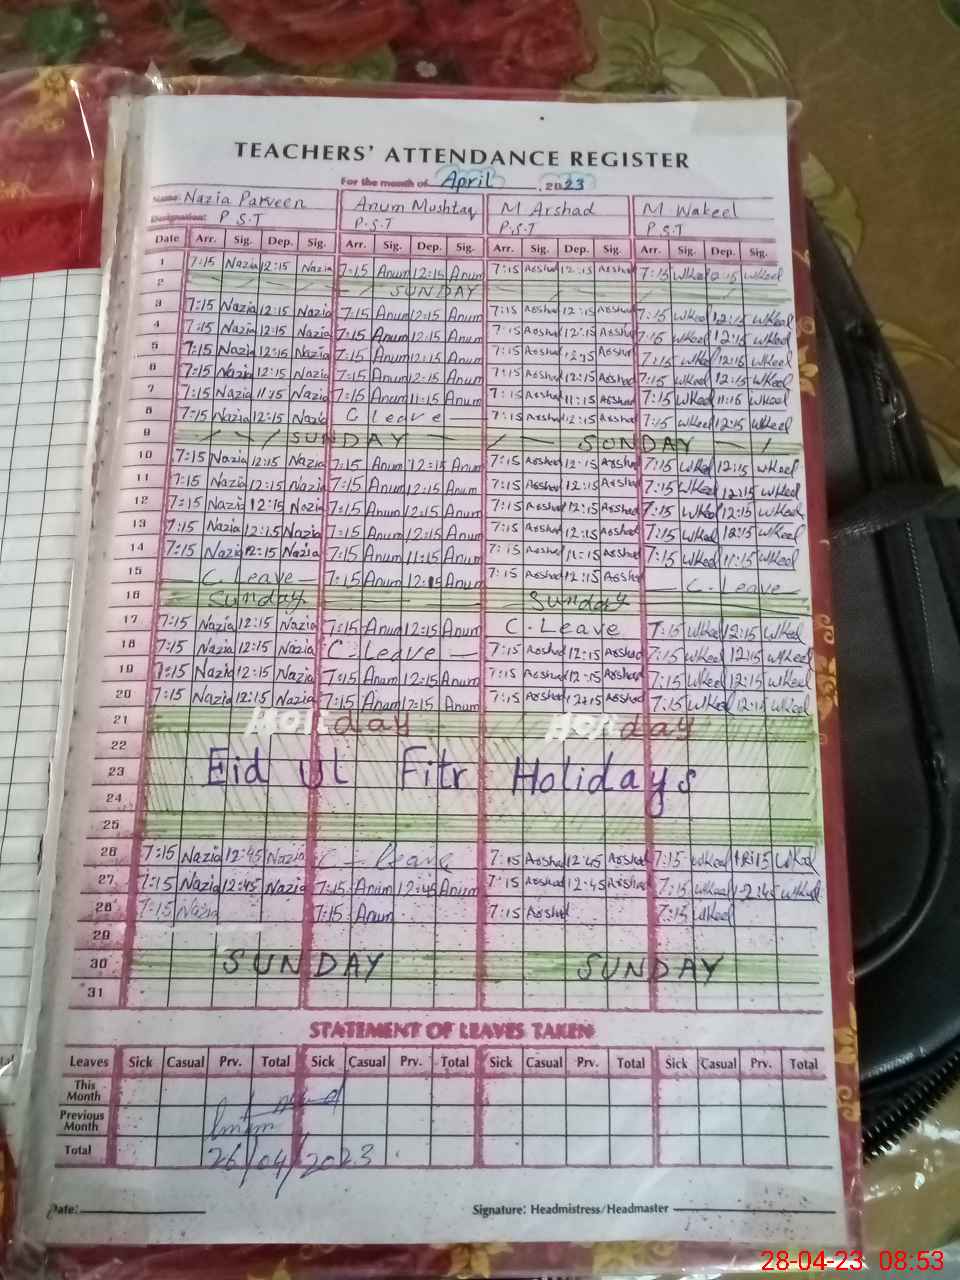 TEACHERS' ATTENDANCE REGISTER
For the month of April, 2023
Name: Nazia Parveen Anum Mushtaq M Arshad M Wakeel
Designation: P.S.T P.S.T P.S.T P.S.T
Date Arr. Sig. Dep. Sig. Arr. Sig. Dep. Sig. Arr. Sig. Dep. Sig. Arr. Sig. Dep. Sig.
1 7:15 Nazia 12:15 Nazia 7:15 Anum 12:15 Anum 7:15 Arshad 12:15 Arshad 7:15 WKeel 12:15 WKeel
2 SUNDAY
3 7:15 Nazia 12:15 Nazia 7:15 Anum 12:15 Anum 7:15 Arshad 12:15 Arshad 7:15 WKeel 12:15 WKeel
4 7:15 Nazia 12:15 Nazia 7:15 Anum 12:15 Anum 7:15 Arshad 12:15 Arshad 7:15 WKeel 12:15 WKeel
5 7:15 Nazia 12:15 Nazia 7:15 Anum 12:15 Anum 7:15 Arshad 12:15 Arshad 7:15 WKeel 12:15 WKeel
6 7:15 Nazia 12:15 Nazia 7:15 Anum 12:15 Anum 7:15 Arshad 12:15 Arshad 7:15 WKeel 12:15 WKeel
7 7:15 Nazia 11:15 Nazia 7:15 Anum 11:15 Anum 7:15 Arshad 11:15 Arshad 7:15 WKeel 11:15 WKeel
8 7:15 Nazia 12:15 Nazia C Leave 7:15 Arshad 12:15 Arshad 7:15 WKeel 12:15 WKeel
9 SUNDAY SUNDAY
10 7:15 Nazia 12:15 Nazia 7:15 Anum 12:15 Anum 7:15 Arshad 12:15 Arshad 7:15 WKeel 12:15 WKeel
11 7:15 Nazia 12:15 Nazia 7:15 Anum 12:15 Anum 7:15 Arshad 12:15 Arshad 7:15 WKeel 12:15 WKeel
12 7:15 Nazia 12:15 Nazia 7:15 Anum 12:15 Anum 7:15 Arshad 12:15 Arshad 7:15 WKeel 12:15 WKeel
13 7:15 Nazia 12:15 Nazia 7:15 Anum 12:15 Anum 7:15 Arshad 12:15 Arshad 7:15 WKeel 12:15 WKeel
14 7:15 Nazia 12:15 Nazia 7:15 Anum 11:15 Anum 7:15 Arshad 11:15 Arshad 7:15 WKeel 11:15 WKeel
15 C. Leave 7:15 Anum 12:15 Anum 7:15 Arshad 12:15 Arshad C. Leave
16 Sunday Sunday
17 7:15 Nazia 12:15 Nazia 7:15 Anum 12:15 Anum C. Leave 7:15 WKeel 12:15 WKeel
18 7:15 Nazia 12:15 Nazia C. Leave 7:15 Arshad 12:15 Arshad 7:15 WKeel 12:15 WKeel
19 7:15 Nazia 12:15 Nazia 7:15 Anum 12:15 Anum 7:15 Arshad 12:15 Arshad 7:15 WKeel 12:15 WKeel
20 7:15 Nazia 12:15 Nazia 7:15 Anum 12:15 Anum 7:15 Arshad 12:15 Arshad 7:15 WKeel 12:15 WKeel
21 Holiday Holiday
22
23 Eid Ul Fitr Holidays
24
25
26 7:15 Nazia 12:45 Nazia C - Leave 7:15 Arshad 12:45 Arshad 7:15 WKeel WKeel
27 7:15 Nazia 12:45 Nazia 7:15 Anum 12:45 Anum 7:15 Arshad 12:45 Arshad 7:15 WKeel 12:45 WKeel
28 7:15 Nazia 7:15 Anum 7:15 Arshad 7:15 WKeel
29
30 SUNDAY SUNDAY
31
STATEMENT OF LEAVES TAKEN
Leaves Sick Casual Prv. Total Sick Casual Prv. Total Sick Casual Prv. Total Sick Casual Prv. Total
This Month
Previous Month
Total 26/04/2023
Date: Signature: Headmistress/Headmaster
28-04-23 08:53